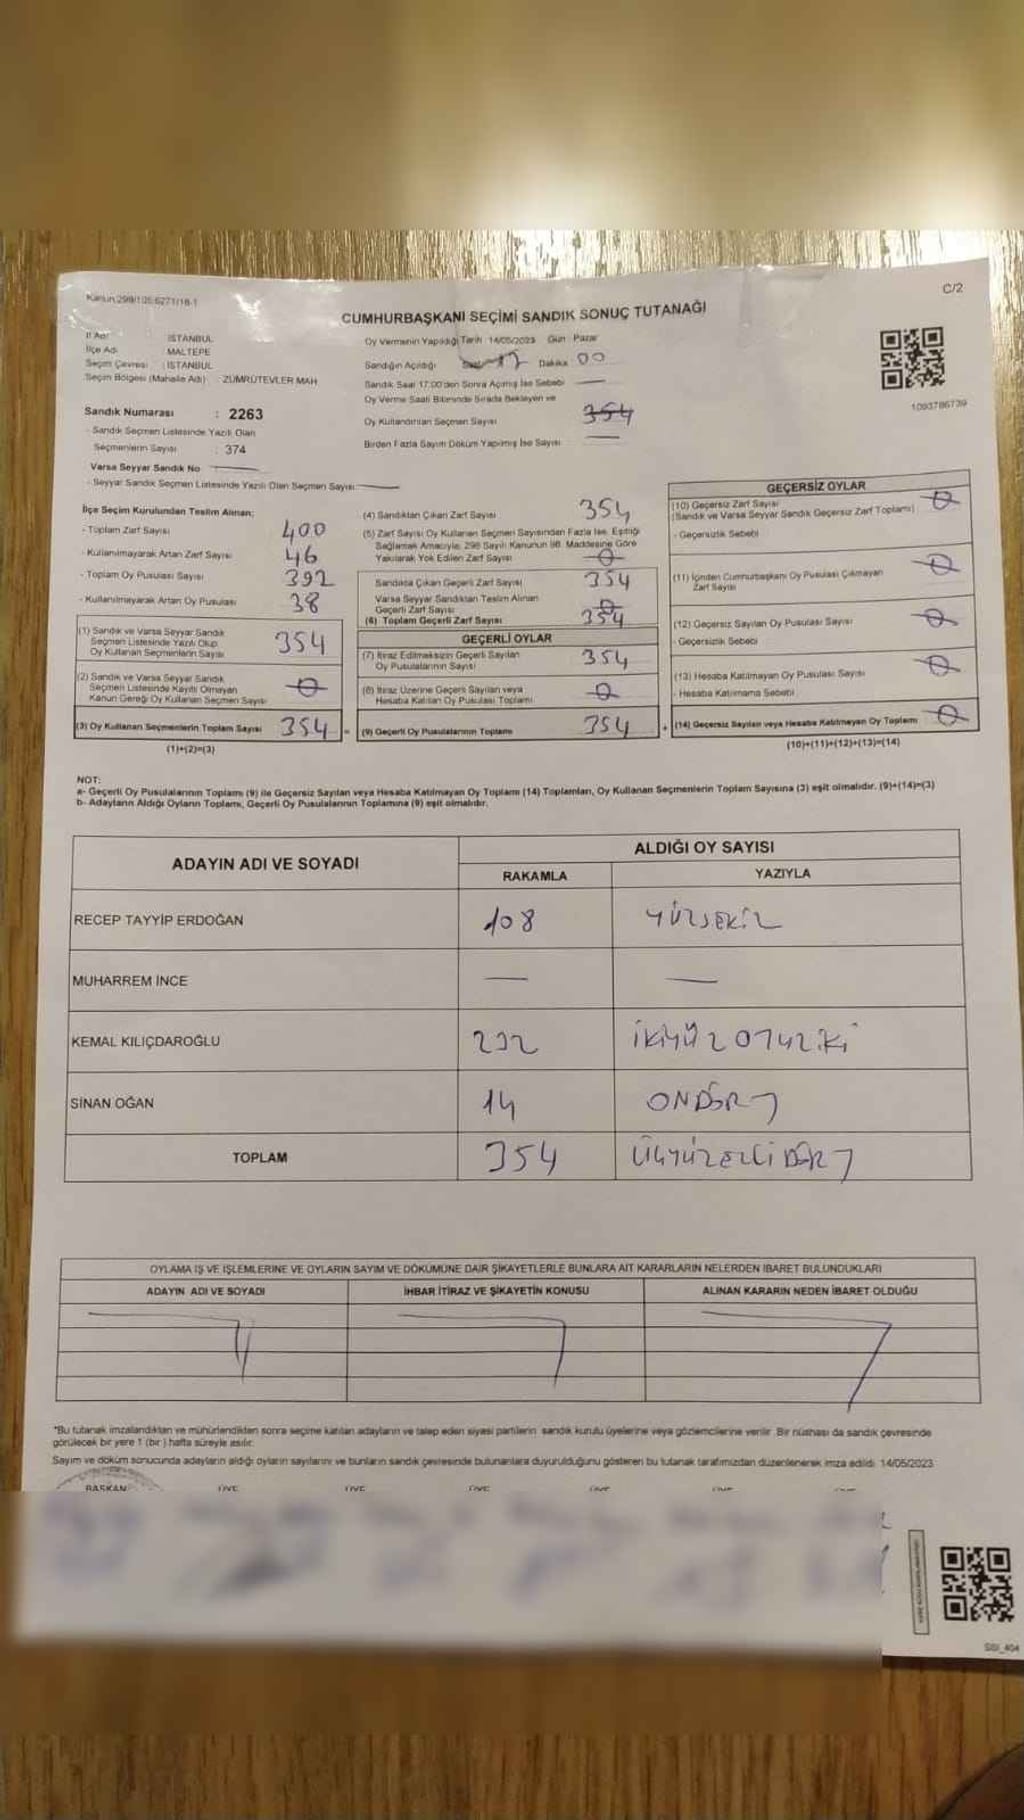 Kanun:298/105;6271/18-1
C/2
CUMHURBAŞKANI SEÇİMİ SANDIK SONUÇ TUTANAĞI
İl Adı : İSTANBUL
İlçe Adı : MALTEPE
Seçim Çevresi : İSTANBUL
Seçim Bölgesi (Mahalle Adı) : ZÜMRÜTEVLER MAH
Sandık Numarası : 2263
- Sandık Seçmen Listesinde Yazılı Olan
Seçmenlerin Sayısı : 374
Varsa Seyyar Sandık No
- Seyyar Sandık Seçmen Listesinde Yazılı Olan Seçmen Sayısı:
Oy Vermenin Yapıldığı Tarih 14/05/2023 Gün : Pazar
Sandığın Açıldığı Saat 17 Dakika 00
Sandık Saat 17:00'den Sonra Açılmış İse Sebebi
Oy Verme Saati Bitiminde Sırada Bekleyen ve
Oy Kullandırılan Seçmen Sayısı 354
Birden Fazla Sayım Döküm Yapılmış İse Sayısı
1093786739
İlçe Seçim Kurulundan Teslim Alınan;
- Toplam Zarf Sayısı 400
- Kullanılmayarak Artan Zarf Sayısı 46
- Toplam Oy Pusulası Sayısı 392
- Kullanılmayarak Artan Oy Pusulası 38
(1) Sandık ve Varsa Seyyar Sandık
Seçmen Listesinde Yazılı Olup
Oy Kullanan Seçmenlerin Sayısı 354
(2) Sandık ve Varsa Seyyar Sandık
Seçmen Listesinde Kayıtlı Olmayan
Kanun Gereği Oy Kullanan Seçmen Sayısı 0
(3) Oy Kullanan Seçmenlerin Toplam Sayısı 354 =
(1)+(2)=(3)
(4) Sandıktan Çıkan Zarf Sayısı 354
(5) Zarf Sayısı Oy Kullanan Seçmen Sayısından Fazla İse, Eşitliği
Sağlamak Amacıyla, 298 Sayılı Kanunun 98. Maddesine Göre
Yakılarak Yok Edilen Zarf Sayısı 0
Sandıkta Çıkan Geçerli Zarf Sayısı 354
Varsa Seyyar Sandıktan Teslim Alınan
Geçerli Zarf Sayısı 0
(6) Toplam Geçerli Zarf Sayısı 354
GEÇERLİ OYLAR
(7) İtiraz Edilmeksizin Geçerli Sayılan
Oy Pusulalarının Sayısı 354
(8) İtiraz Üzerine Geçerli Sayılan veya
Hesaba Katılan Oy Pusulası Toplamı 0
(9) Geçerli Oy Pusulalarının Toplamı 354 +
GEÇERSİZ OYLAR
(10) Geçersiz Zarf Sayısı 0
(Sandık ve Varsa Seyyar Sandık Geçersiz Zarf Toplamı)
- Geçersizlik Sebebi
(11) İçinden Cumhurbaşkanı Oy Pusulası Çıkmayan 0
Zarf Sayısı
(12) Geçersiz Sayılan Oy Pusulası Sayısı 0
- Geçersizlik Sebebi
(13) Hesaba Katılmayan Oy Pusulası Sayısı 0
- Hesaba Katılmama Sebebi
(14) Geçersiz Sayılan veya Hesaba Katılmayan Oy Toplamı 0
(10)+(11)+(12)+(13)=(14)
NOT:
a- Geçerli Oy Pusulalarının Toplamı (9) ile Geçersiz Sayılan veya Hesaba Katılmayan Oy Toplamı (14) Toplamları, Oy Kullanan Seçmenlerin Toplam Sayısına (3) eşit olmalıdır. (9)+(14)=(3)
b- Adayların Aldığı Oyların Toplamı, Geçerli Oy Pusulalarının Toplamına (9) eşit olmalıdır.
ADAYIN ADI VE SOYADI ALDIĞI OY SAYISI
RAKAMLA YAZIYLA
RECEP TAYYİP ERDOĞAN 108 YÜZSEKİZ
MUHARREM İNCE — —
KEMAL KILIÇDAROĞLU 232 İKİYÜZOTUZİKİ
SİNAN OĞAN 14 ONDÖRT
TOPLAM 354 ÜÇYÜZELLİDÖRT
OYLAMA İŞ VE İŞLEMLERİNE VE OYLARIN SAYIM VE DÖKÜMÜNE DAİR ŞİKAYETLERLE BUNLARA AİT KARARLARIN NELERDEN İBARET BULUNDUKLARI
ADAYIN ADI VE SOYADI İHBAR İTİRAZ VE ŞİKAYETİN KONUSU ALINAN KARARIN NEDEN İBARET OLDUĞU
*Bu tutanak imzalandıktan ve mühürlendikten sonra seçime katılan adayların ve talep eden siyasi partilerin sandık kurulu üyelerine veya gözlemcilerine verilir. Bir nüshası da sandık çevresinde
görülecek bir yere 1 (bir ) hafta süreyle asılır.
Sayım ve döküm sonucunda adayların aldığı oyların sayılarını ve bunların sandık çevresinde bulunanlara duyurulduğunu gösteren bu tutanak tarafımızdan düzenlenerek imza edildi. 14/05/2023
BAŞKAN ÜYE ÜYE ÜYE ÜYE ÜYE ÜYE